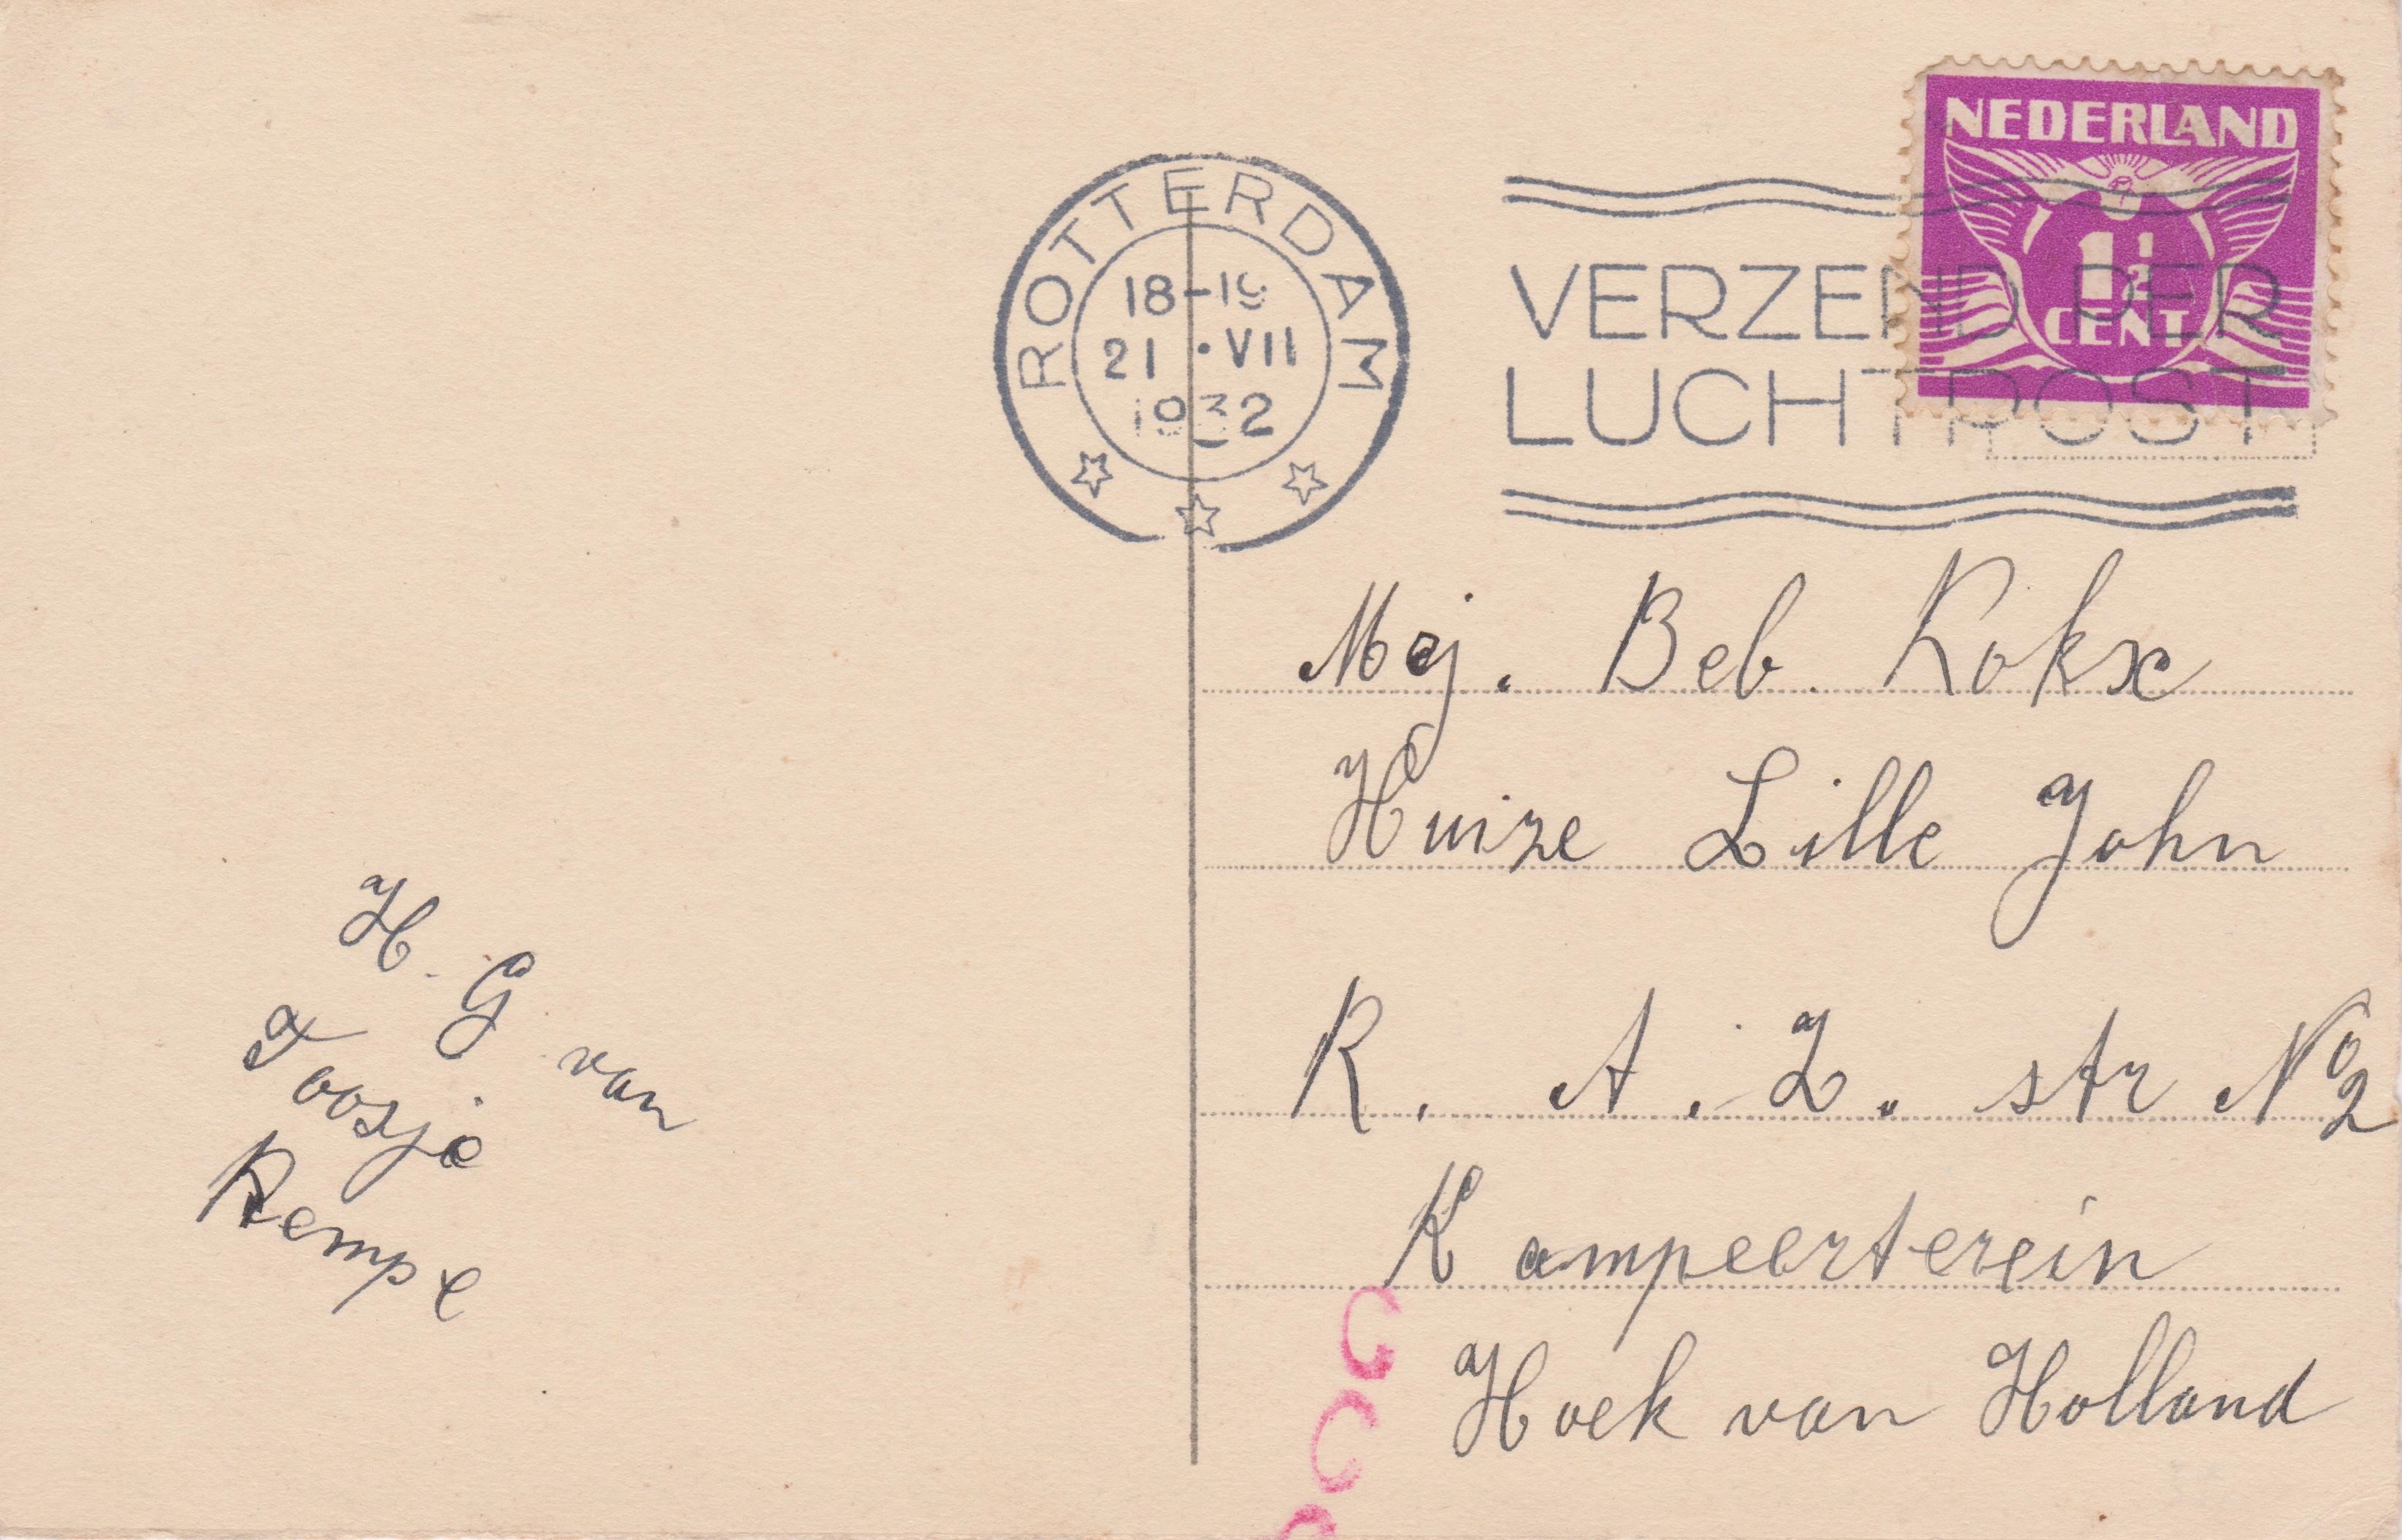 ROTTERDAM
18-19
21 · VII
1932
VERZEND PER
LUCHTPOST
NEDERLAND
1½
CENT
Mej. Beb Kokx
Huize Lille John
R. A. Z. str No 2
Kampeerterein
Hoek van Holland
H. G van
Toosje
Kempe